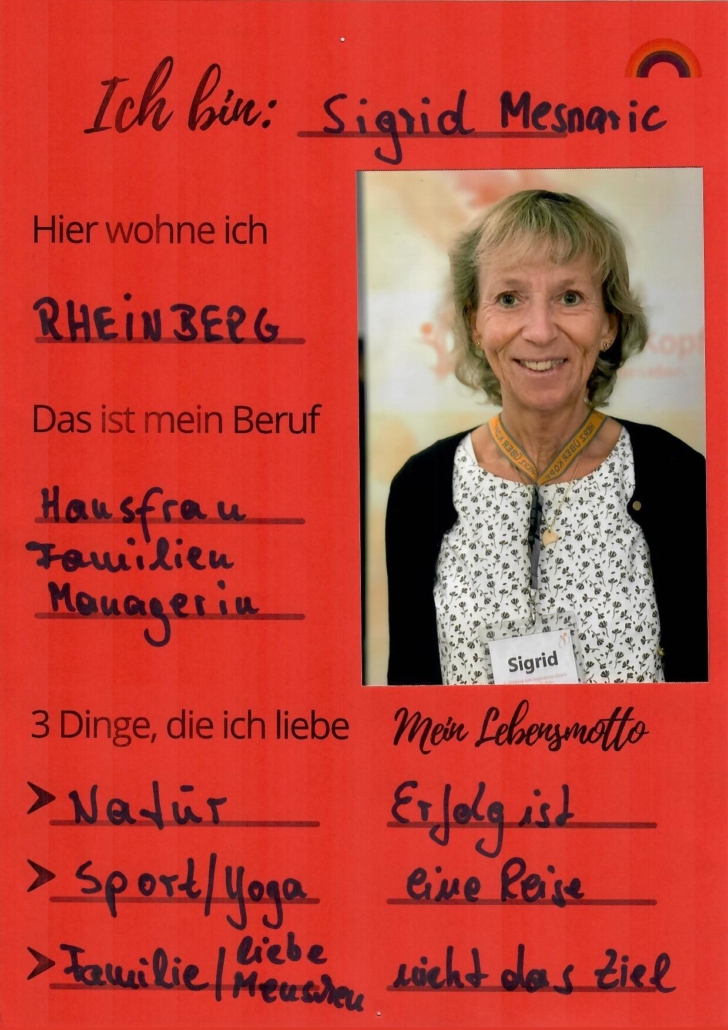 Ich bin: Sigrid Mesnaric
Hier wohne ich
RHEINBERG
Das ist mein Beruf
Hausfrau
Familien
Managerin
Kopf
Sigrid
3 Dinge, die ich liebe
> Natur
> Sport/Yoga
> Familie/liebe
Menschen
Mein Lebensmotto
Erfolg ist
eine Reise
nicht das Ziel